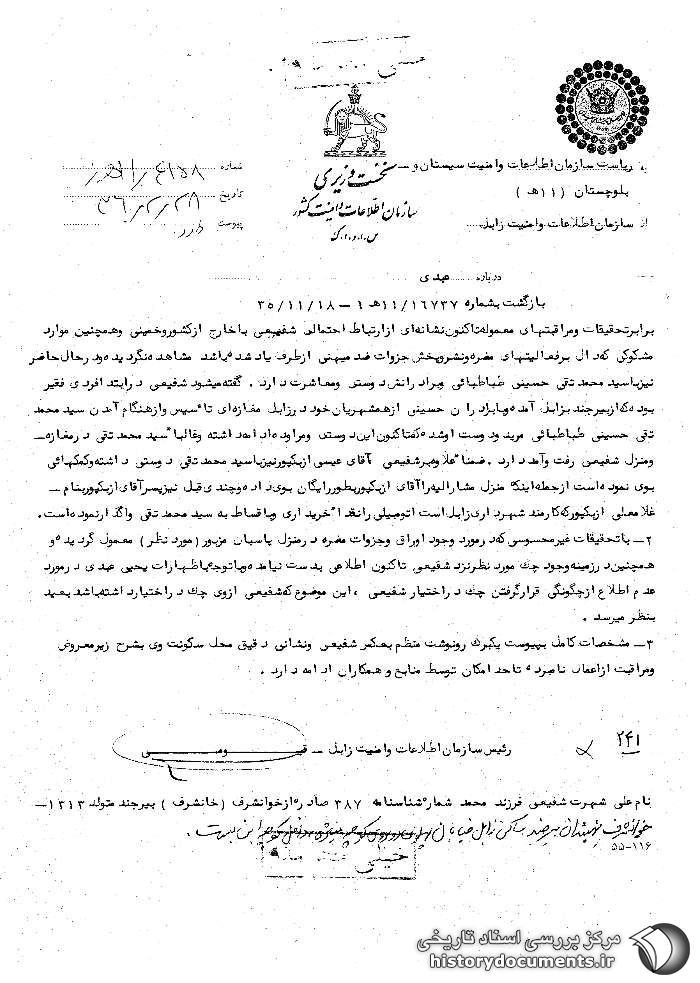 خیلی محرمانه
به ریاست سازمان اطلاعات وامنیت سیستان و
بلوچستان (۱۱ هـ )
از سازمان اطلاعات وامنیت زابل
نخست وزیری
سازمان اطلاعات و امنیت کشور
س.ا.و.ا.ک
شماره
تاریخ ۳۶/۲/۲۸
پیوست دارد
درباره عبدی
بازگشت بشماره ۱۱/۱۶۷۳۷هـ ۱ – ۳۵/۱۱/۱۸
برابرتحقیقات ومراقبتهای معموله تاکنون نشانه‌ای ازارتباط احتمالی شفیعی با خارج ازکشوروخمینی وهمچنین موارد
مشکوکی که دال برفعالیتهای مضره ونشروپخش جزوات ضد میهنی ازطرف یاد شده باشد مشاهده نگردیده ودرحال حاضر
نیزباسید محمد تقی حسینی طباطبائی وبرادرانش دوستی ومعاشرت دارد . گفته میشود شفیعی درابتدا فردی فقیر
بوده که ازبیرجند بزابل آمده وبابرادران حسینی ازهمشهریان خود درزابل مغازه‌ای تاسیس وازهنگام آمدن سید محمد
تقی حسینی طباطبائی مرید ودوست اوشده که تاکنون این دوستی ومراوده ادامه داشته وغالبا سید محمد تقی درمغازه –
ومنزل شفیعی رفت وآمد دارد . ضمنا علاوه برشفیعی آقای عیسی ازبکپورنیزباسید محمد تقی دوستی داشته وکمکهائی
بوی نموده است ازجمله اینکه منزل مشارالیه را آقای ازبکپوربطوررایگان بوی داده وچندی قبل نیزپسرآقای ازبکپوربنام –
غلامعلی ازبکپورکه کارمند شهرداری زابل است اتومبیلی رانقدا خریداری وباقساط به سید محمد تقی واگذارنموده است .
۲– باتحقیقات غیرمحسوسی که درمورد وجود اوراق وجزوات مضره درمنزل پاسبان مزبور (مورد نظر ) معمول گردیده و
همچنین درزمینه وجود چک مورد نظرنزد شفیعی تاکنون اطلاعی بدست نیامده وباتوجه باظهارات یحیی عبدی درمورد
عدم اطلاع ازچگونگی قرارگرفتن چک دراختیار شفیعی ، این موضوع که شفیعی ازوی چک دراختیارداشته باشد بعید
بنظر میرسد .
۳– مشخصات کامل بپیوست یکبرگ رونوشت منظم بعکس شفیعی ونشانی دقیق محل سکونت وی بشرح زیرمعروض
ومراقبت ازاعمال نامبرده تاحد امکان توسط منابع وهمکاران ادامه دارد .
رئیس سازمان اطلاعات وامنیت زابل – قیومی
۲۴۱
نام علی شهرت شفیعی فرزند محمد شماره شناسنامه ۳۸۷ صادره ازخوانشرف ( خانشرف ) بیرجند متولد ۱۳۱۳–
ساکن زابل خیابان
۵۵-۱۱۶
خیلی محرمانه
مرکز بررسی اسناد تاریخی
historydocuments.ir